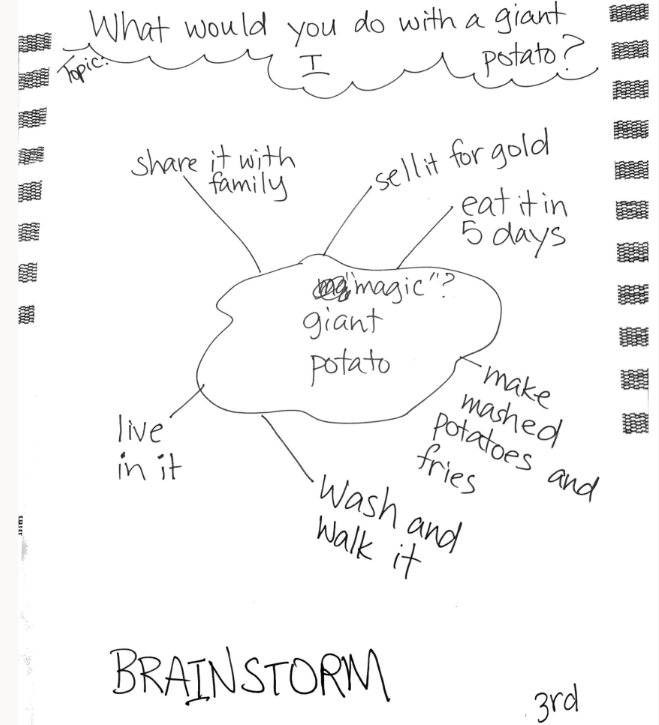 What would you do with a giant
Topic: I potato?
share it with
family
sell it for gold
eat it in
5 days
"magic"?
giant
potato
make
mashed
potatoes and
fries
live
in it
Wash and
Walk it
BRAINSTORM
3rd